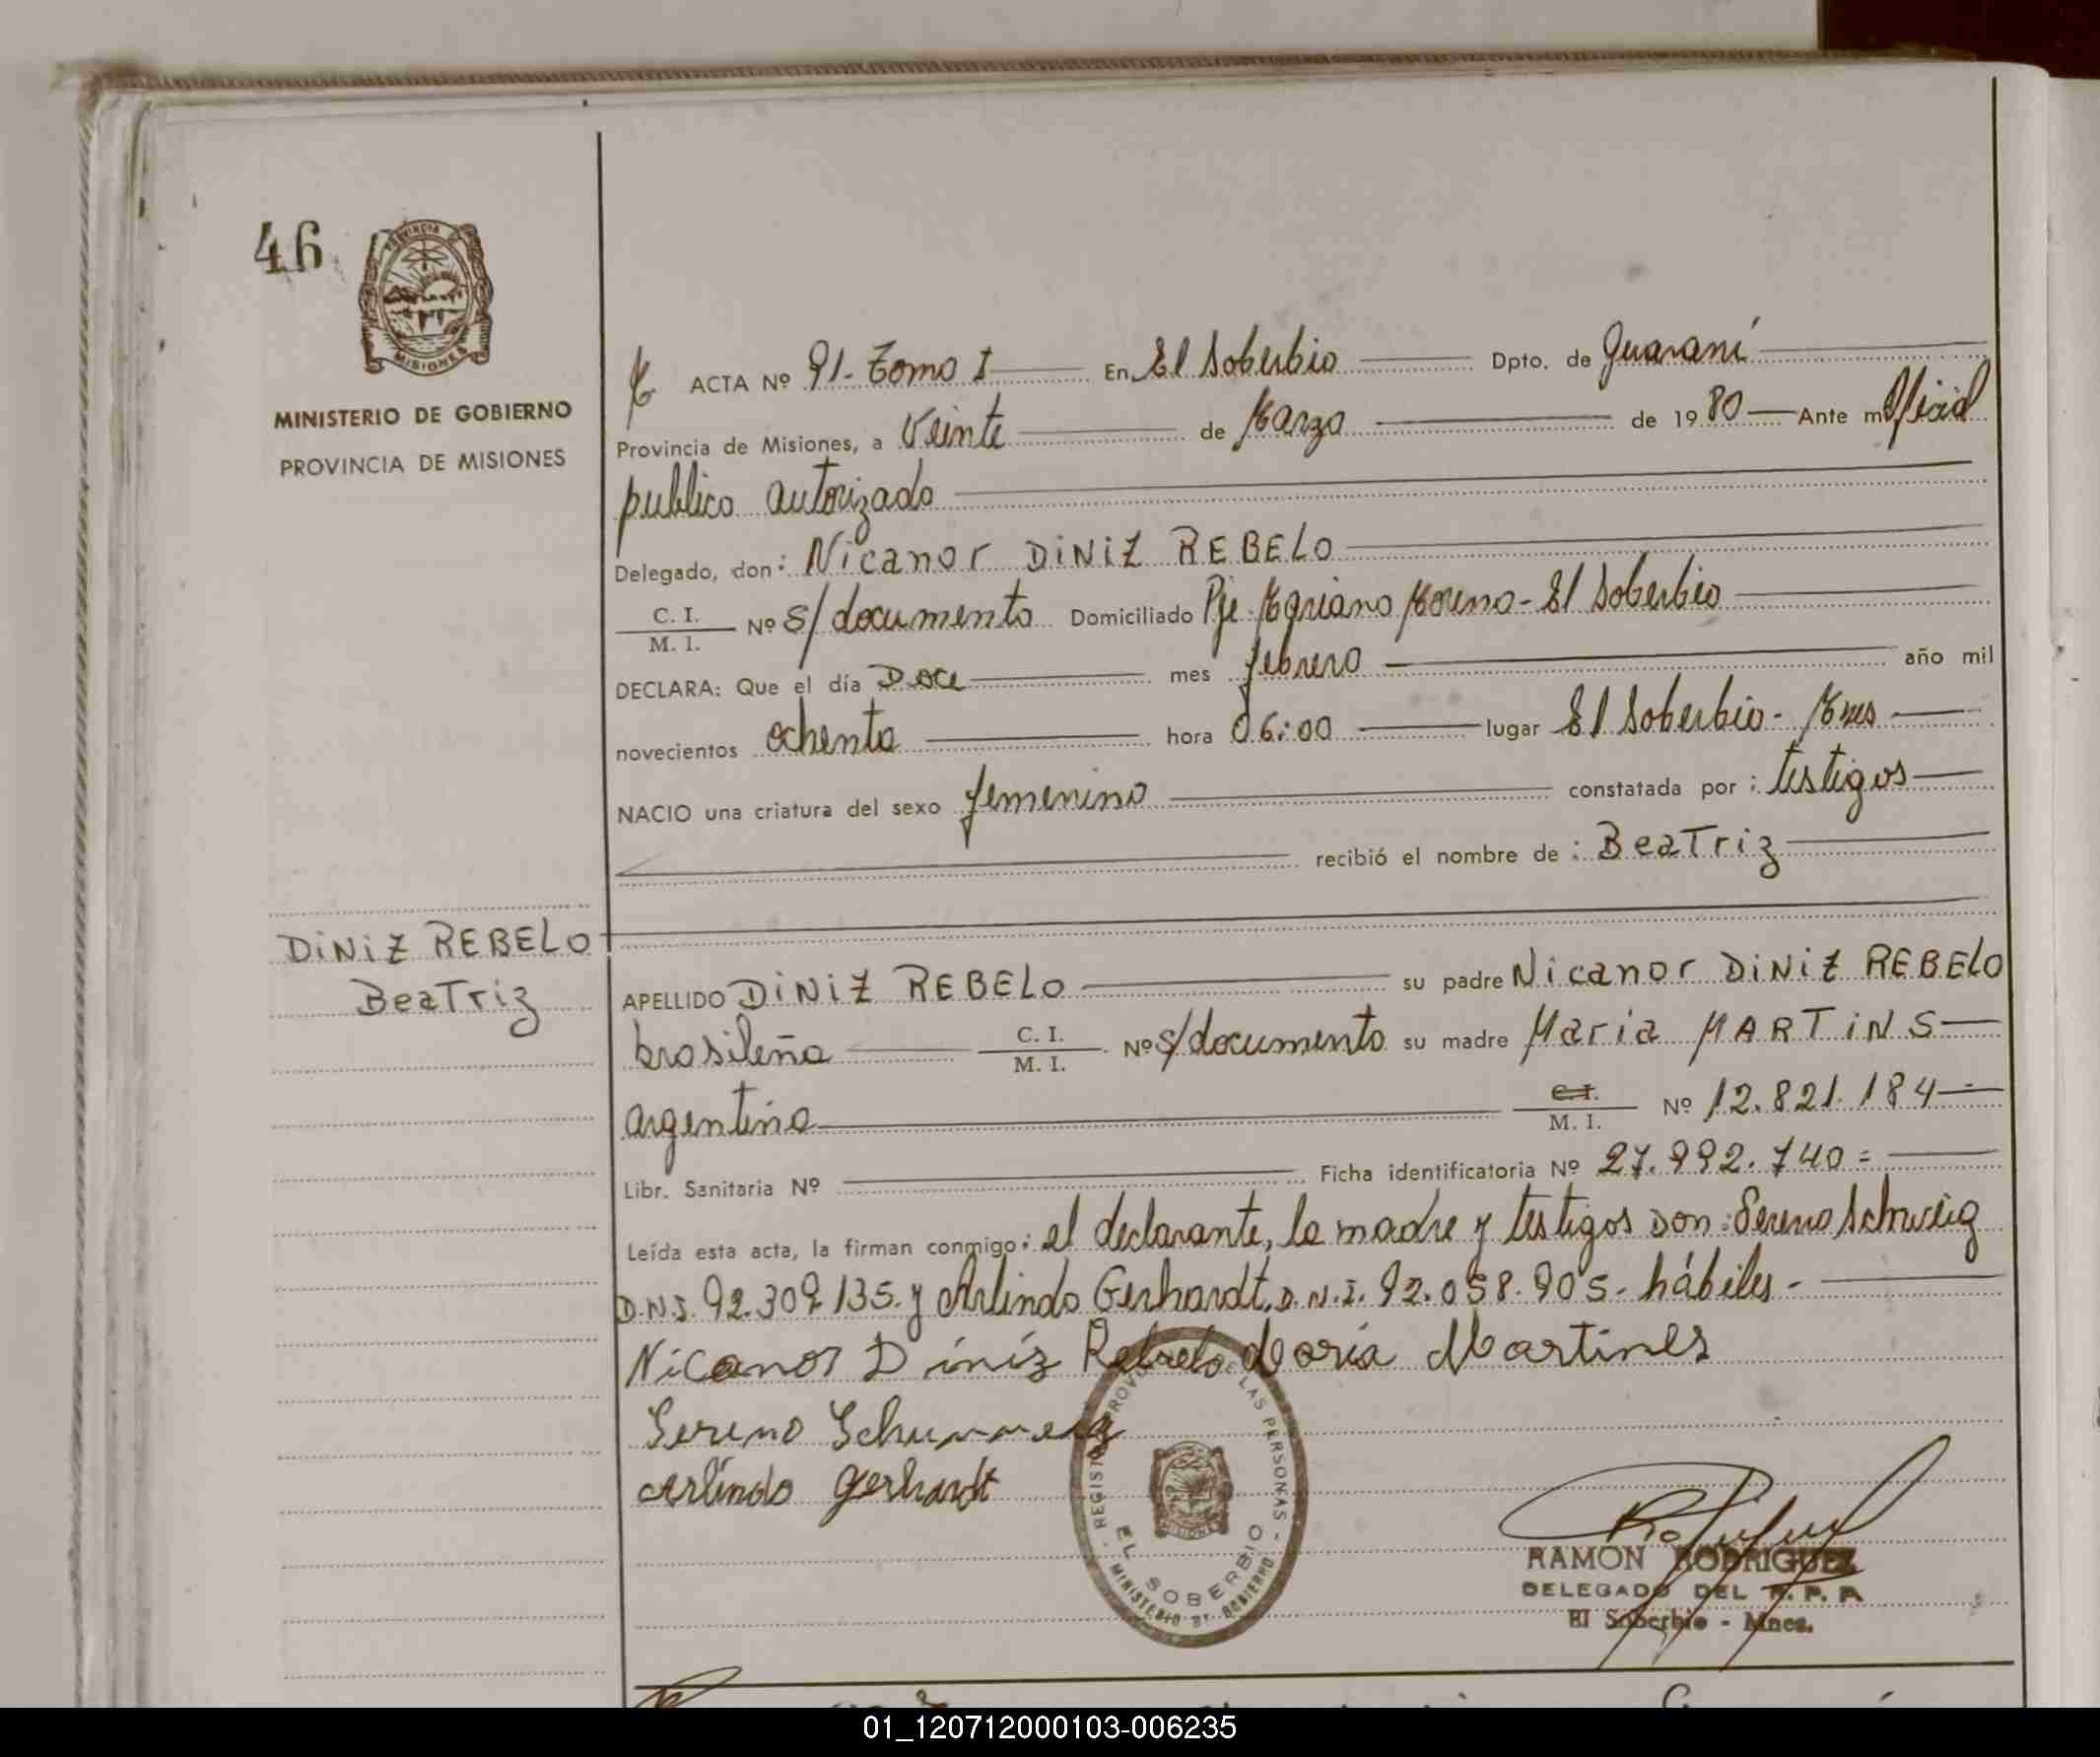 46
PROVINCIA DE MISIONES
MINISTERIO DE GOBIERNO
PROVINCIA DE MISIONES
ACTA Nº 91- Tomo I En El Soberbio Dpto. de Guaraní
Provincia de Misiones, a Veinte de Marzo de 1980 Ante mi Oficial
publico autorizado
Delegado, don: Nicanor DINIZ REBELO
C. I. / M. I. Nº s/documento Domiciliado Pje. Mariano Moreno - El Soberbio
DECLARA: Que el día Doce mes febrero año mil
novecientos ochenta hora 06:00 lugar El Soberbio - Mnes
NACIO una criatura del sexo femenino constatada por: testigos
recibió el nombre de: Beatriz
DINIZ REBELO
Beatriz
APELLIDO DINIZ REBELO su padre Nicanor DINIZ REBELO
brasileña C. I. / M. I. Nº s/documento su madre Maria MARTINS
argentina C.I. / M. I. Nº 12.821.184
Libr. Sanitaria Nº Ficha identificatoria Nº 27.992.740=
Leída esta acta, la firman conmigo: el declarante, la madre y testigos Don: Sereno Schweig
D.N.I. 92.309.135. y Arlindo Gerhardt. D.N.I. 92.058.905- hábiles-
Nicanor Diniz Rebelo Maria Martines
Sereno
Arlindo Gerhardt
REGISTRO PROVINCIAL DE LAS PERSONAS - MINISTERIO DE GOBIERNO
EL SOBERBIO
RAMON RODRIGUEZ
DELEGADO DEL R. P. P.
El Soberbio - Mnes.
01_120712000103-006235